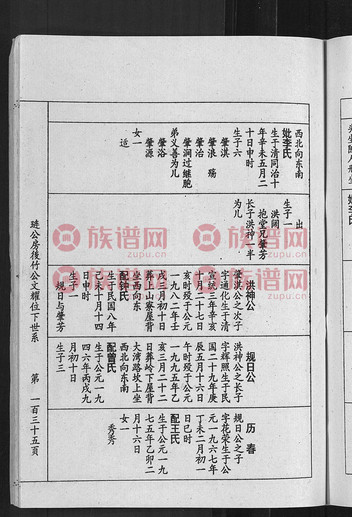 西北向东南
妣李氏
生于清同治十
年辛未五月二
十日申时
生子六
肇淇
肇浪 殇
肇治
肇涧过继胞
弟义善为儿
肇浴
肇源
女一
适
出
生子一
洪阔
抱堂兄肇芳
长子洪神一半
为儿
洪神公
肇淇公之次子
字迪化生于清
宣统三年辛亥
十月二十七日
亥时殁于公元
一九八二年壬
戌三月初十日
葬上山寮屋背
坐西向东
配钟氏
生于民国八年
己未十月十四
日申时
生子一
规日与肇芳
规日公
洪神公之长子
字辉照生于民
国二十九年庚
辰五月十六日
午时殁于公元
一九九五年乙
亥三月初二十
日葬岭下屋背
大湾路坎上坐
西北向东南
配曾氏
生于公元一九
四六年丙戌九
月初十日
生子三
历春
规日公之子
字花荣生于公
元一九六七年
丁未二月初一
日巳时
配王氏
生于公元一九
七五年乙卯二
月十六日
女一
秀秀
琏公房後竹公文耀位下世系
第一百三十五頁
族谱网
www.zupu.cn